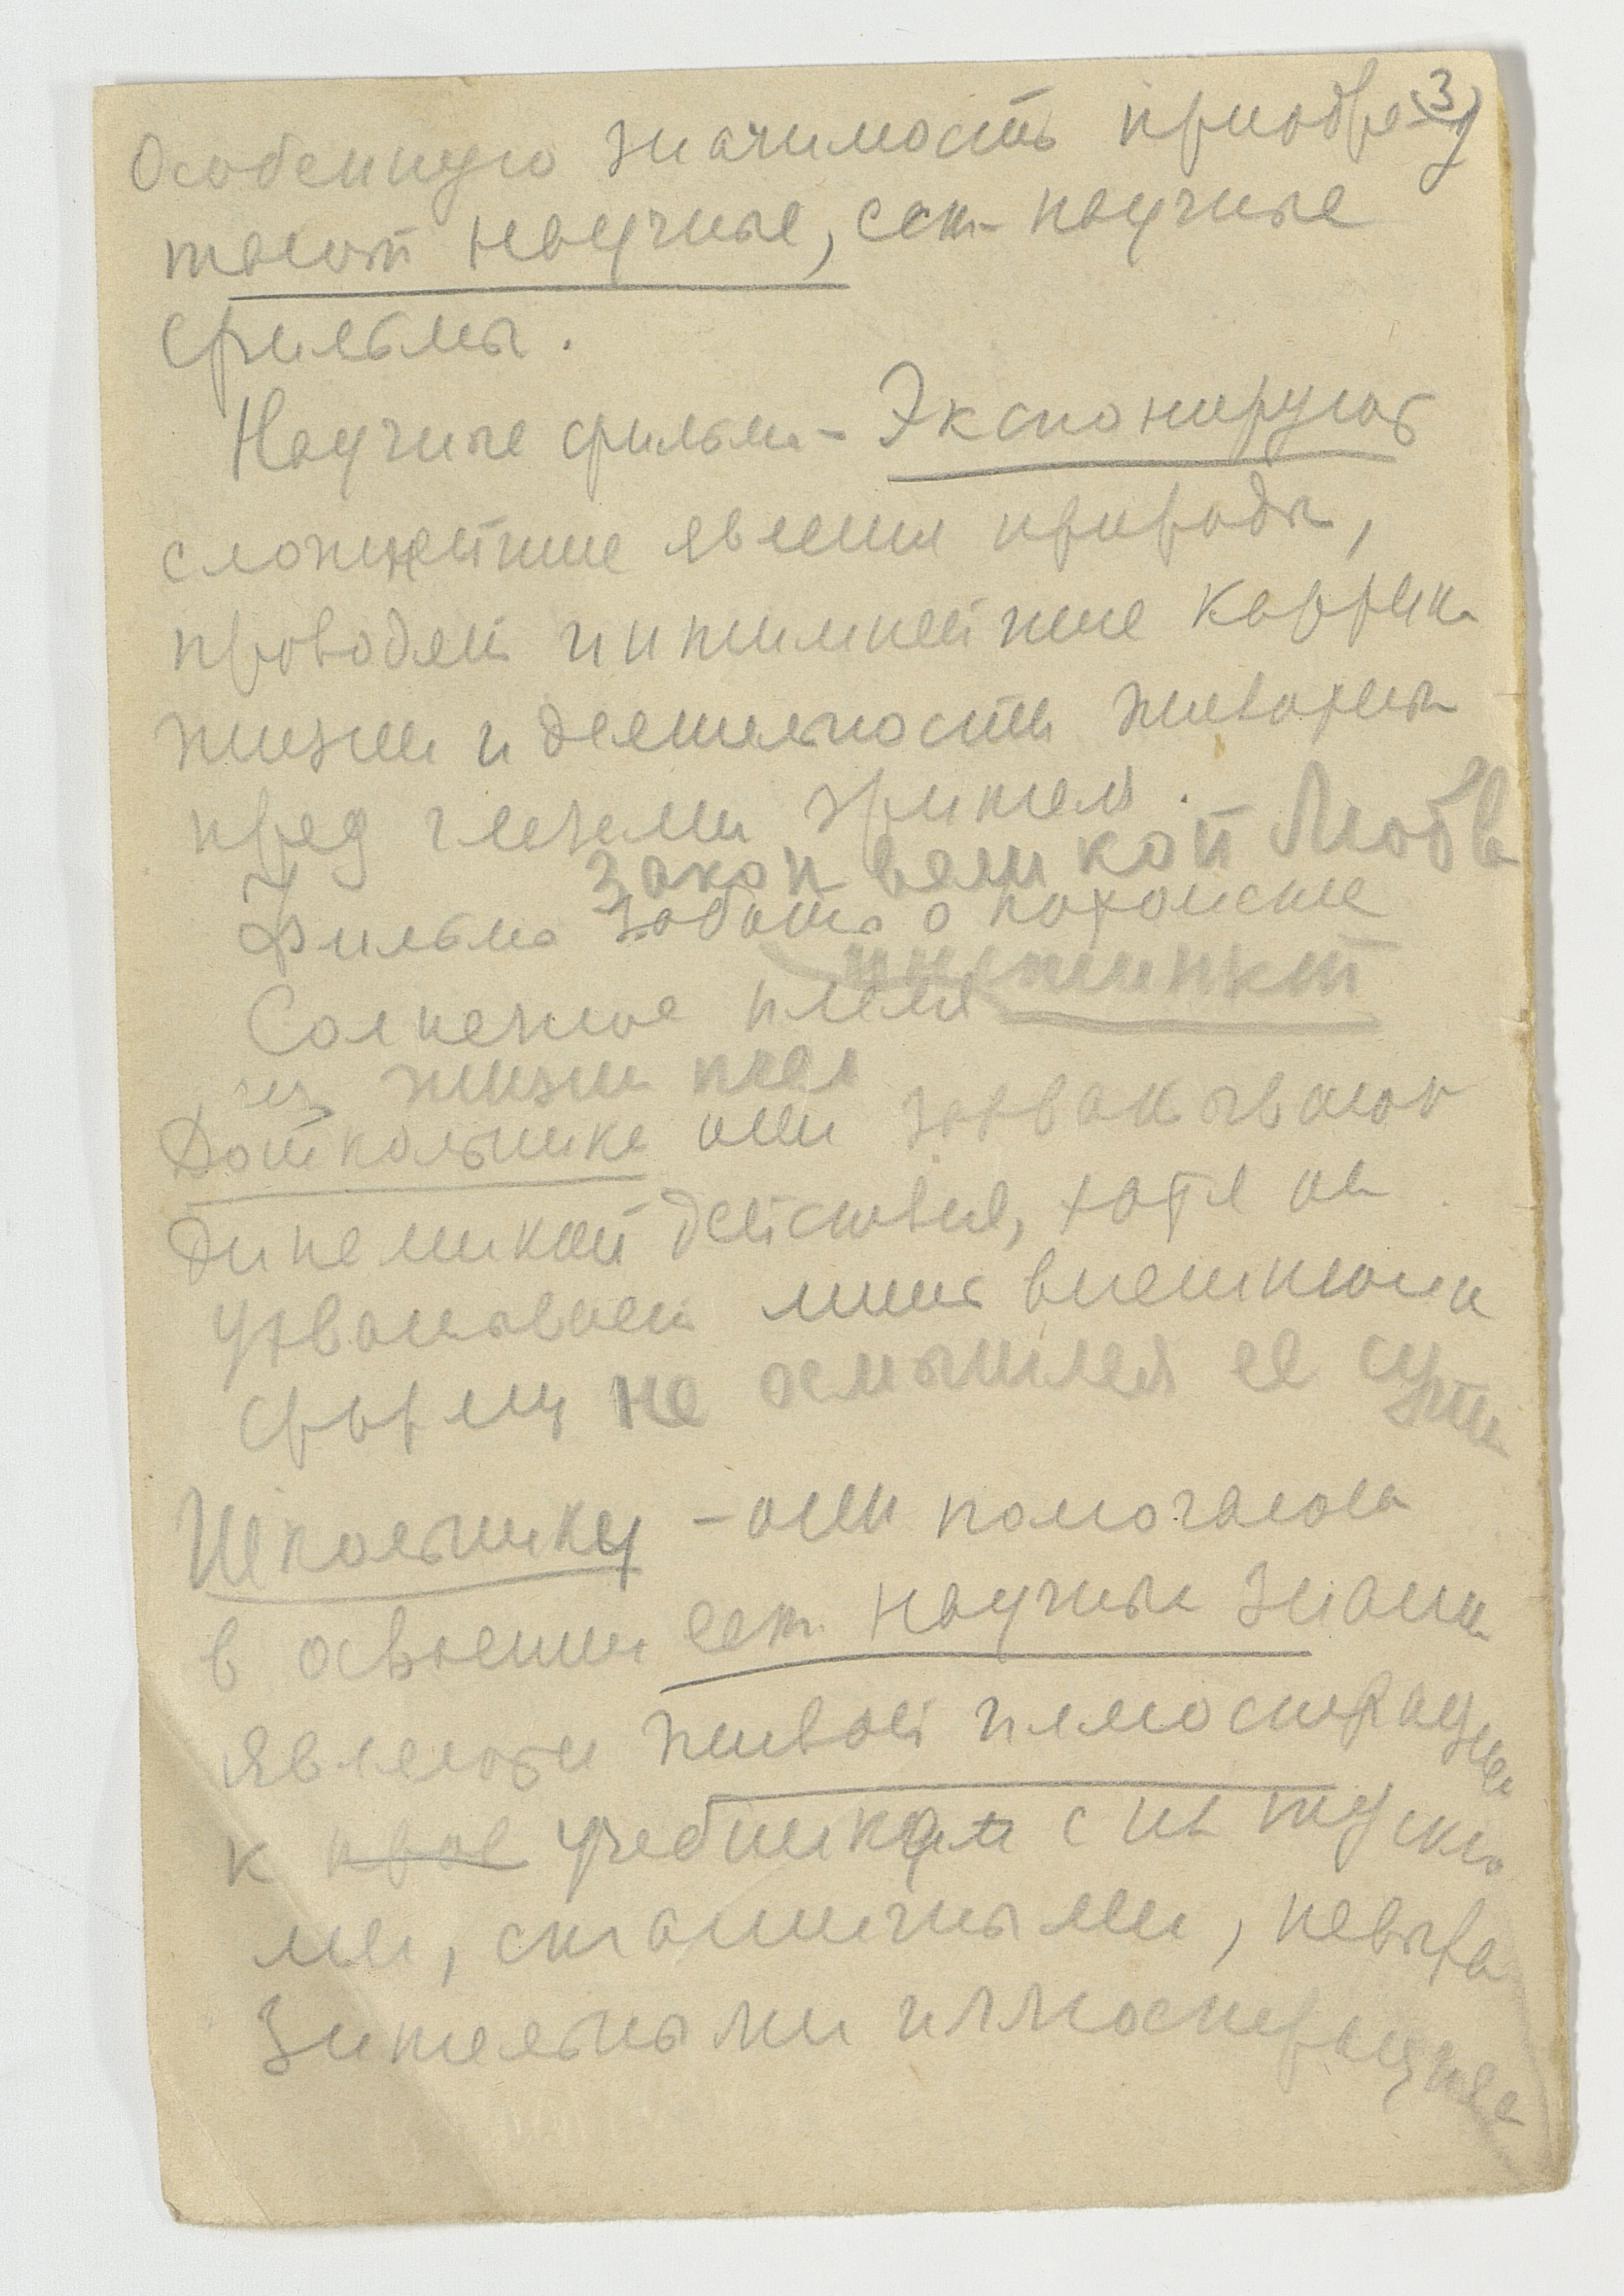 3)
Особенную значимость приобре
тают научные, ест-научные
фильмы.
Научные фильмы - Экспонируют
сложнейшие явления природы,
проводят интимнейшие картины
жизни и деятельности животных
пред глазами зрителя.
Закон великой Любви
Фильмы Забота о потомстве
инстинкт
Солнечное племя
из жизни пчел
Дошкольника они захватывают
динамикой действия, хотя он
ухватывает лишь внешнюю
форму не осмышляя ее сути
Школьнику - они помогают
в освоении ест. научных знаний
являются живой иллюстрацией
к учебникам с их тускны
ми, статичными, невыра
зительными иллюстрациями